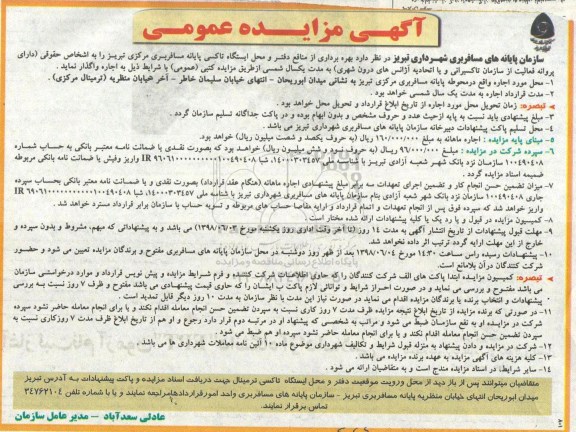 آگهی مزایده عمومی
سازمان پایانه های مسافربری شهرداری تبریز در نظر دارد بهره برداری از منافع دفتـر و محل ایستگاه تاکسی پایانه مسافربـری مرکزی تبریـز را به اشخاص حقوقی (دارای
پروانه فعالیت از سازمان تاکسیرانی و یا اتحادیه آژانس های درون شهری) به مدت یکسال شمسی ازطریق مزایده کتبی (عمومی) با شرایط ذیل به اجاره واگذار نماید .
۱- محل مورد اجاره واقع درمحوطه پایانه مسافربری مرکزی تبریز به نشانی میدان ابوریحان - انتهای خیابان سلیمان خاطر - آخر خیابان منظریه (ترمینال مرکزی) .
۲- مدت قرارداد اجاره به مدت یک سال شمسی خواهد بود .
تبصره: زمان تحویل محل مورد اجاره از تاریخ ابلاغ قرارداد و تحویل محل خواهد بود .
۳- مبلغ پیشنهادی باید نسبت به پایه ازحیث عدد و حروف مشخص و بدون ابهام بوده و در پاکت جداگانه تسلیم سازمان گردد .
۴- محل تسلیم پاکت پیشنهادات دبیرخانه سازمان پایانه های مسافربری شهرداری تبریز می باشد .
۵- مبنای پایه مزایده : اجاره ماهانه به مبلغ ۱۶۰/۰۰۰/۰۰۰ ریال (به حروف یکصد و شصت میلیون ریال) خواهد بود.
۶- سپرده شرکت در مزایده : مبلـغ ۹۶/۰۰۰/۰۰۰ ریـال (به حـروف نـود و شش میلیـون ریال) خواهـد بود که بصورت نقـدی یا ضمانت نامـه معتبـر بانکی به حساب شمـاره
۱۰۰۴۹۰۴۰۸ سازمـان نزد بانک شهـر شعبـه آزادی تبریـز با شناسه ملی ۱۴۰۰۰۳۰۳۴۵۷
ضمیمه اسناد مزایده گردد .
۷- میزان تضمین حسن انجام کار و تضمین اجرای تعهدات سه برابر مبلغ پیشنهادی اجاره ماهانه (هنگام عقد قرارداد) بصورت نقدی و یا ضمانت نامه معتبر بانکی بحساب سپرده
واریز خواهد شد که سپرده فوق پس از انجام تعهدات و اتمام قرارداد و ارایه مفاصا حساب های مربوطه و تسویه حساب با سازمان برابر قرارداد مسترد خواهد شد .
۸- کمیسیون مزایده در قبول و یا رد یک یا کلیه پیشنهادات ارائه شده مختار است .
۹- مهلت قبول پیشنهادات از تاریخ انتشار آگهی به مدت ۱۴ روز (تا آخر وقت اداری روز یکشنبه مورخ ۱۳۹۸/۰۶/۰۳) می باشد و به پیشنهاداتی که مبهم، مشروط و بدون سپرده و
خارج از این مهلت ارایه گردد ترتیب اثر داده نخواهد شد.
۱۰- پیشنهادات رسیده راس ساعت ۱۴:۳۰ مورخ ۱۳۹۸/۰۶/۰۴ بعد از ظهر روز دوشنبـه در محل سازمان پایانه های مسافربری مفتوح و برندگان مزایده تعیین می شود و حضـور
شرکت کنندگان درآن بلامانع است.
تبصره: کمیسیون مزایـده ابتدا پاکت های الف شرکت کنندگان را که حاوی اطلاعـات شرکت کننـده و فرم شرایط مزایده و پیش نویس قرارداد و موارد درخواستـی سازمان
می باشد مفتـوح و بررسی می نماید و در صورت احـراز شرایط و توانائی لازم پاکت ب ایشـان را که حاوی قیمت پیشنهـادی می باشد مفتوح و ظرف ۷ روز نسبت بـه بررسی
پیشنهادات و انتخاب برنده یا برندگان مزایده اقدام می نماید در صورت نیاز این مدت با نظر سازمان به مدت ۱۰ روز دیگر قابل تمدید است .
۱۱- در صورتی که برنده مزایده از تاریخ ابلاغ نتیجه مزایده ظرف مدت ۷ روز کاری نسبت به سپردن تضمین حسن انجام معامله اقدام نکند و یا برای انجام معامله حاضر نشود سپرده
شرکت در مزایـده او به نفع سازمـان ضبـط می شود و مراتب به شخصـی که پیشنهاد او در مرتبـه دوم قرار دارد رجـوع و او هم از تاریخ ابلاغ ظرف مدت ۷ روزکاری نسبت به
سپردن تضمین حسن انجام معامله اقدام نکند و یا برای انجام معامله حاضر نشود سپرده او هم ضبط می شود .
۱۲- شرکت در مزایده و دادن پیشنهاد به منزله قبول شرایط و تکالیف شهرداری موضوع ماده ۱۰ آئین نامه معاملات شهرداری ها می باشد .
۱۳- کلیه هزینه های آگهی مزایده به عهده برنده مزایده می باشد .
۱۴- سایر شرایط، در اسناد مزایده مندج است و به متقاضیان ارائه می شود .
متقاضیان میتوانند پس از باز دید از محل ورویت موقعیت دفتر و محل ایستگاه تاکسی ترمینال جهت دریافت اسناد مزایده و پاکت پیشنهادات به آدرس تبریز
میدان ابوریحان انتهای خیابان منظریه پایانه مسافربری تبریز - سازمان پایانه های مسافربری واحد امورقراردادهامراجعه نمایند و یا با شماره تلفن ۳۴۷۶۲۱۰۴
تماس برقرار نمایند.
عادلی سعدآباد - مدیر عامل سازمان